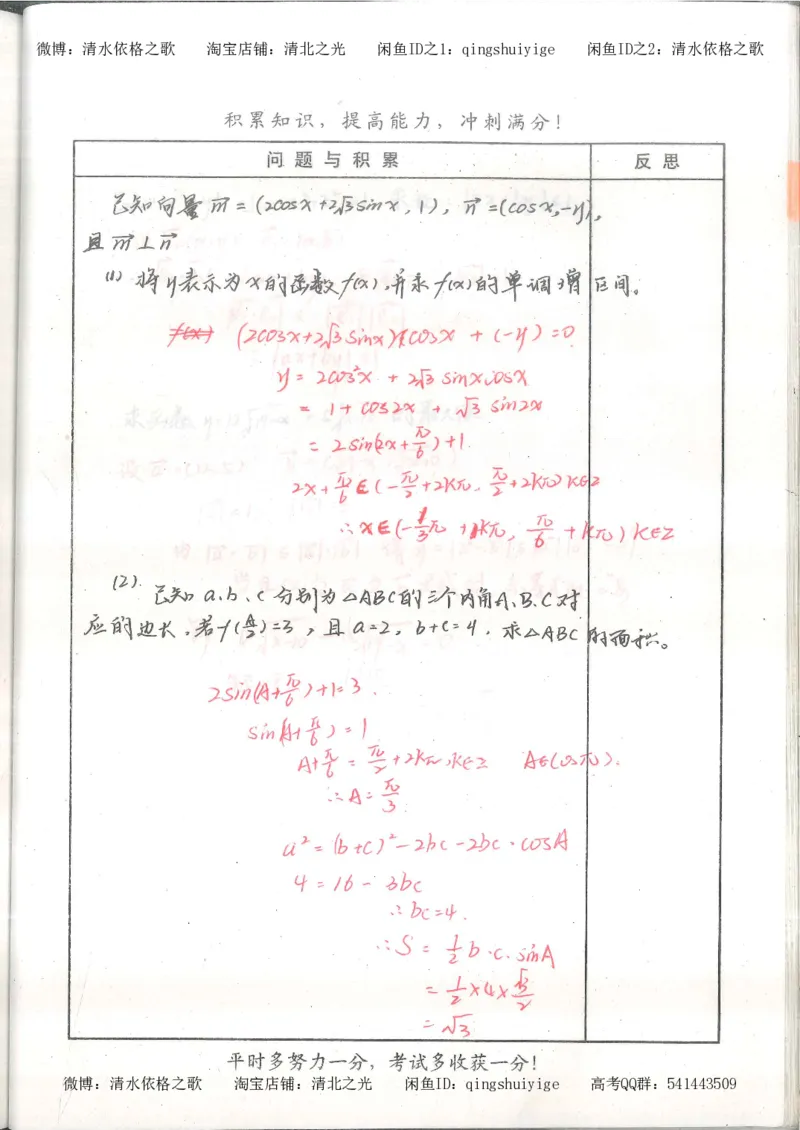 微博：清水依格之歌 淘宝店铺：清北之光 闲鱼ID之1：qingshuiyige 闲鱼ID之2：清水依格之歌
积累知识，提高能力，冲刺满分！
问题与积累 反思
已知向量 m⃗ = (2cosx+2√3sinx, 1), n⃗=(cosx,-y),
且m⃗⊥n⃗
(1) 将y表示为x的函数f(x),并求f(x)的单调增区间。
(2cosx+2√3sinx)cosx + (-y) = 0
y = 2cos²x + 2√3 sinxcosx
= 1+cos2x + √3 sin2x
= 2sin(2x+π/6)+1.
2x+π/6∈(-π/2+2kπ, π/2+2kπ) k∈Z
∴x∈(-1/3π+kπ, π/6+kπ) k∈Z
(2). 已知a、b、c分别为△ABC的三个内角A、B、C对
应的边长,若f(A/2)=3,且a=2,b+c=4.求△ABC的面积。
2sin(A+π/6)+1=3.
sin(A+π/6)=1
A+π/6=π/2+2kπ,k∈Z A∈(0,π).
∴A=π/3
a²=(b+c)²-2bc-2bc·cosA
4=16-3bc
∴bc=4.
∴S=1/2b·c.sinA
=1/2×4×√3/2
=√3
平时多努力一分，考试多收获一分！
微博：清水依格之歌 淘宝店铺：清北之光 闲鱼ID：qingshuiyige 高考QQ群：541443509